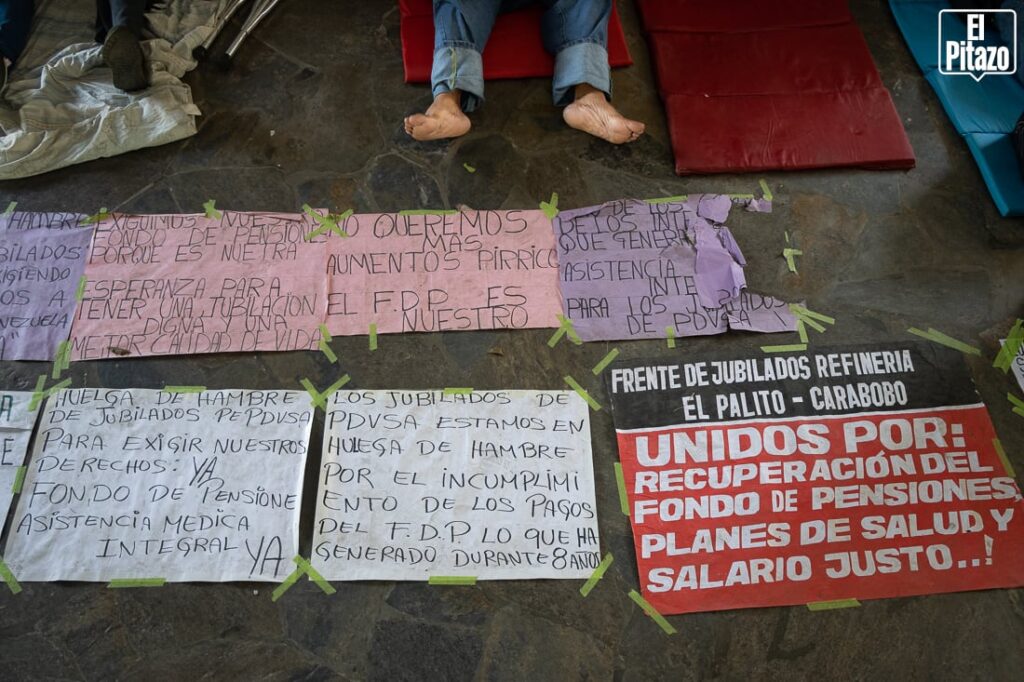 El
Pitazo
HAMBRE
JUBILADOS
EXIGIENDO
A
EXIGUIMOS NUESTRO
FONDO DE PENSIONES
PORQUE ES NUETRA
ESPERANZA PARA
TENER UNA JUBILACION
DIGNA Y UNA
MEJOR CALIDAD DE VIDA
NO QUEREMOS
MAS
AUMENTOS PIRRICO
EL F.D.P ES
NUESTRO
DE LOS
QUE GENER
ASISTENCIA
INTE
PARA LOS JUBILADOS
DE PDVSA!
HUELGA DE HAMBRE
DE JUBILADOS PEPDVSA
PARA EXIGIR NUESTROS
DERECHOS: YA
FONDO DE PENSIONE
ASISTENCIA MEDICA
INTEGRAL YA
LOS JUBILADOS DE
PDVSA ESTAMOS EN
HULEGA DE HAMBRE
POR EL INCUMPLIMI
ENTO DE LOS PAGOS
DEL F.D.P LO QUE HA
GENERADO DURANTE 8 AÑOS
FRENTE DE JUBILADOS REFINERIA
EL PALITO - CARABOBO
UNIDOS POR:
RECUPERACIÓN DEL
FONDO DE PENSIONES,
PLANES DE SALUD Y
SALARIO JUSTO..!